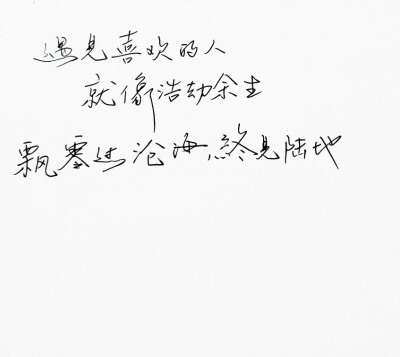 遇见喜欢的人
就像浩劫余生
飘零过沧海,终见陆地